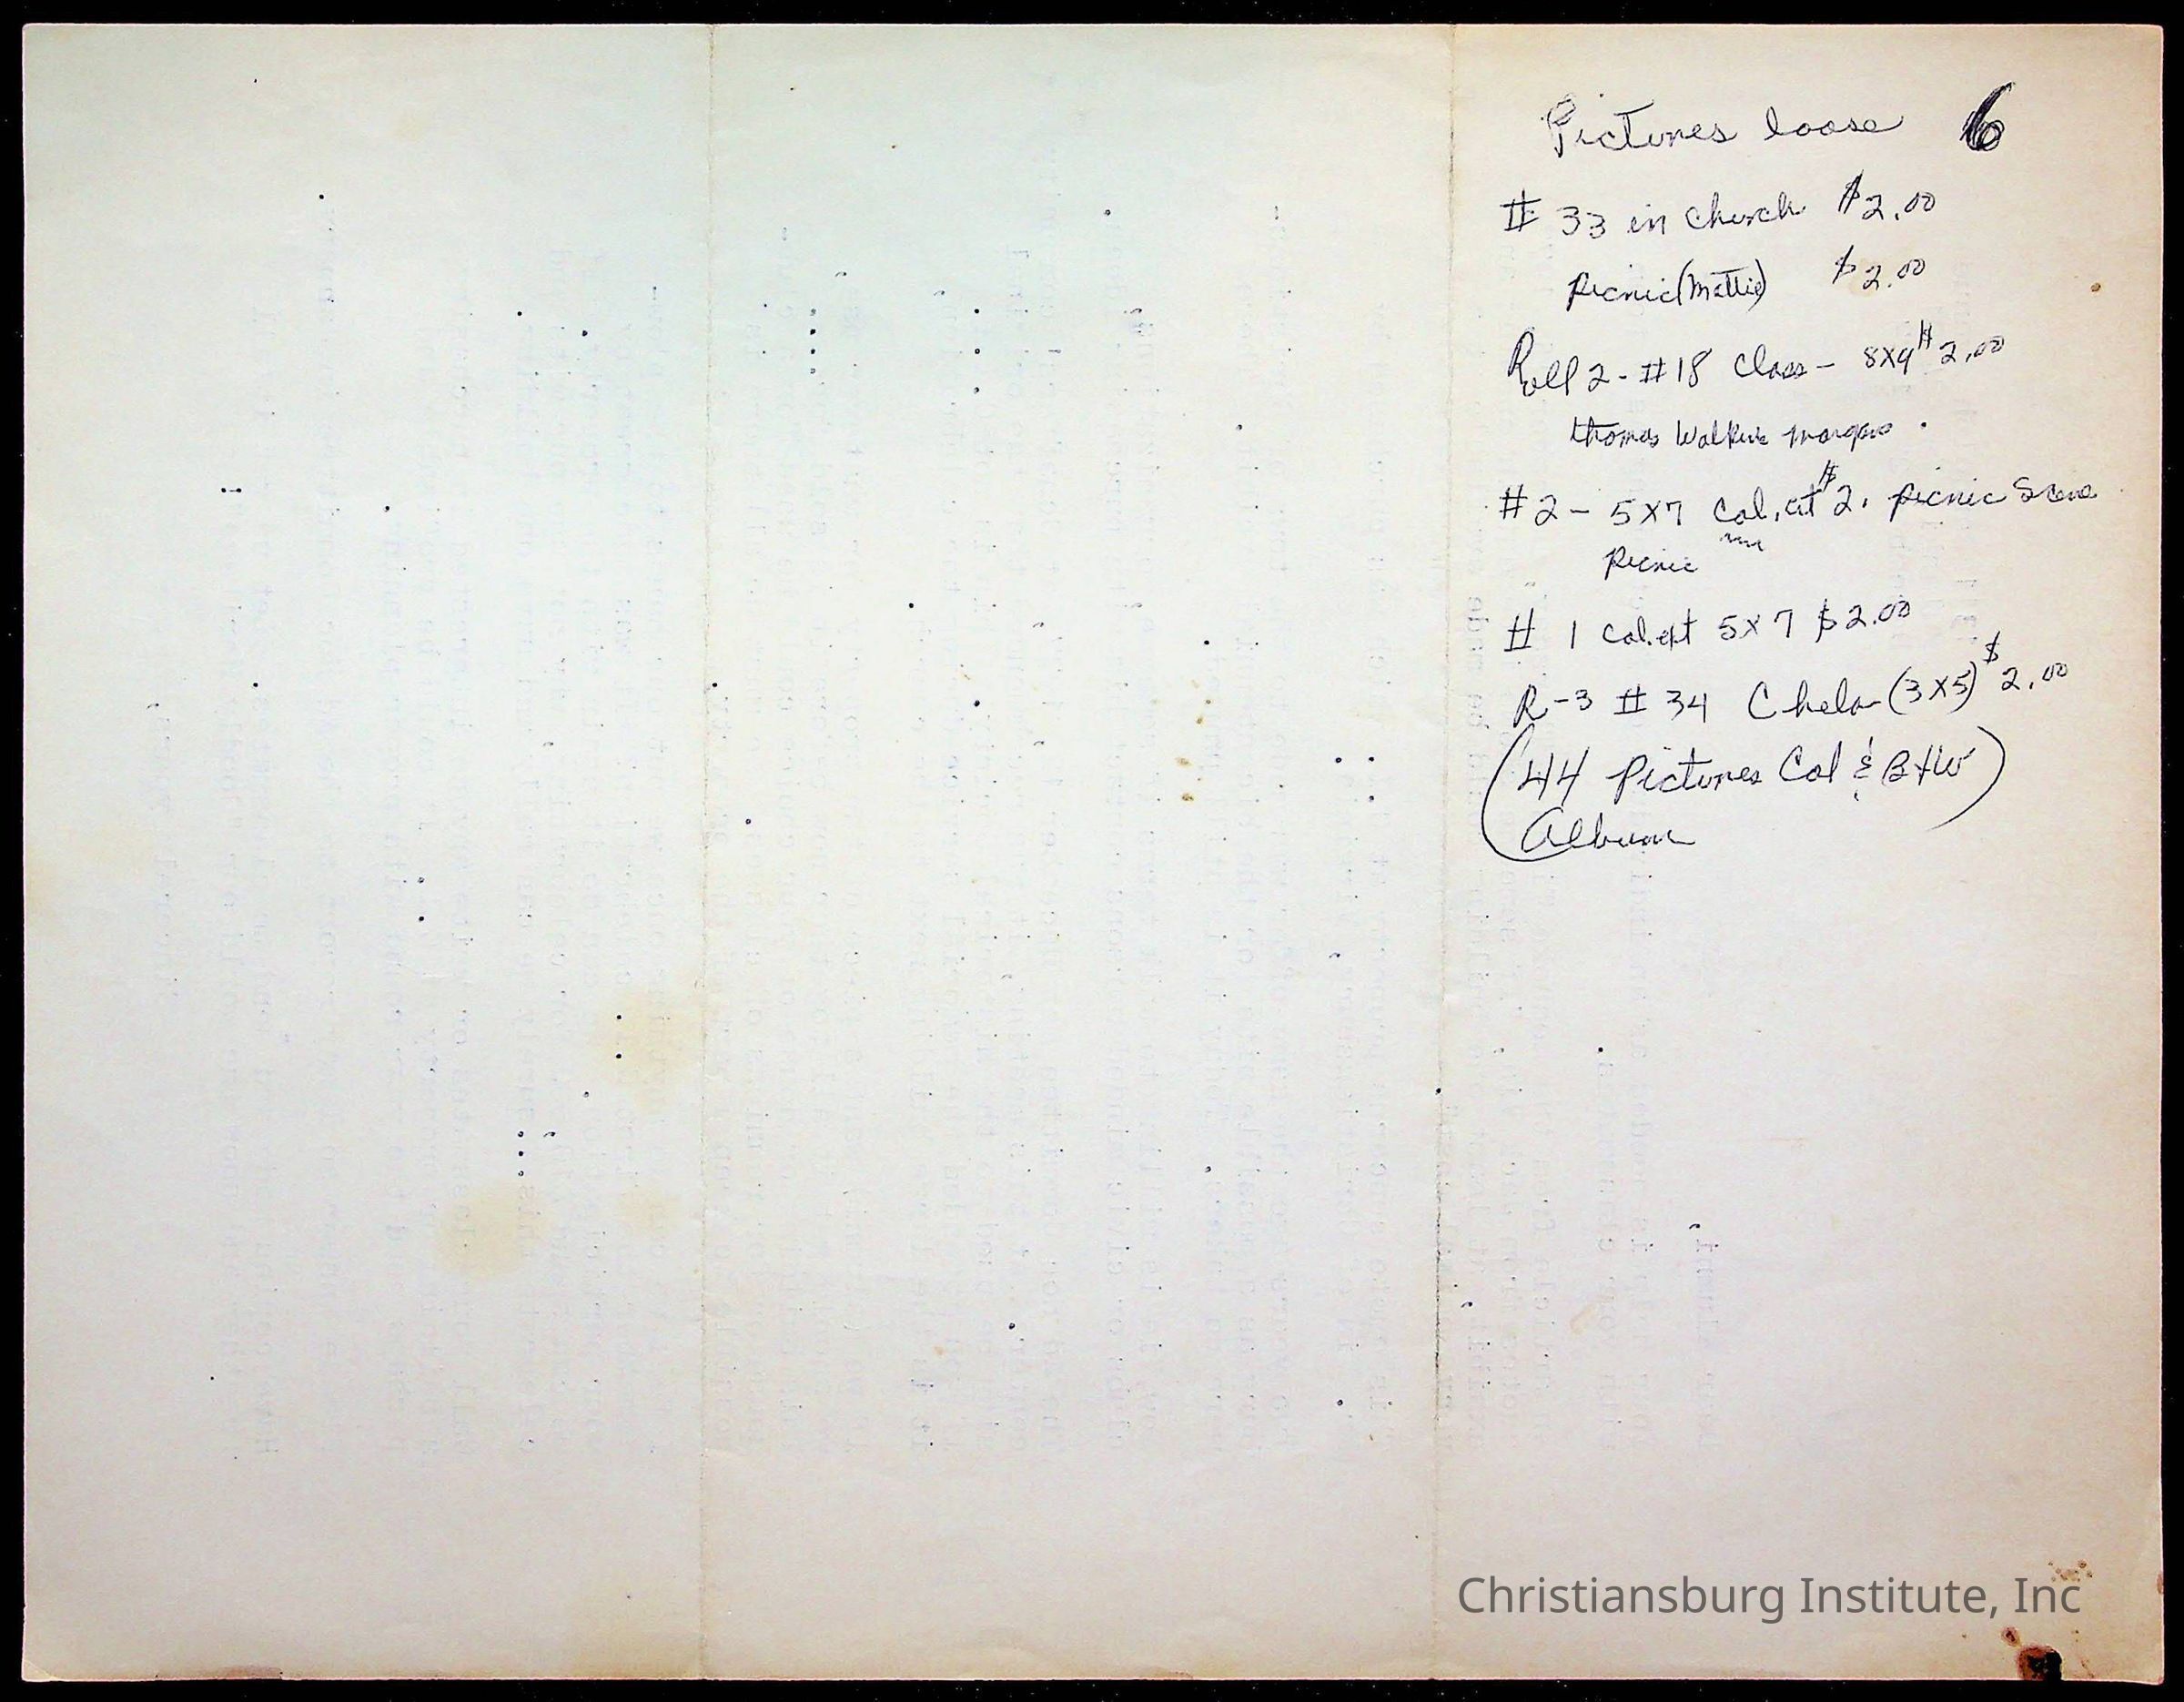 Pictures loose 6
# 33 in Church $2.00
Picnic (Mattie) $2.00
Roll 2 - #18 Class - 8X9 $2.00
Thomas Walker Morgan
#2 - 5X7 Col. at $2. Picnic Scene
Picnic
# 1 Col. at 5X7 $2.00
R-3 # 34 (3X5) $2.00
(44 Pictures Col & B+W)
Album
Christiansburg Institute, Inc